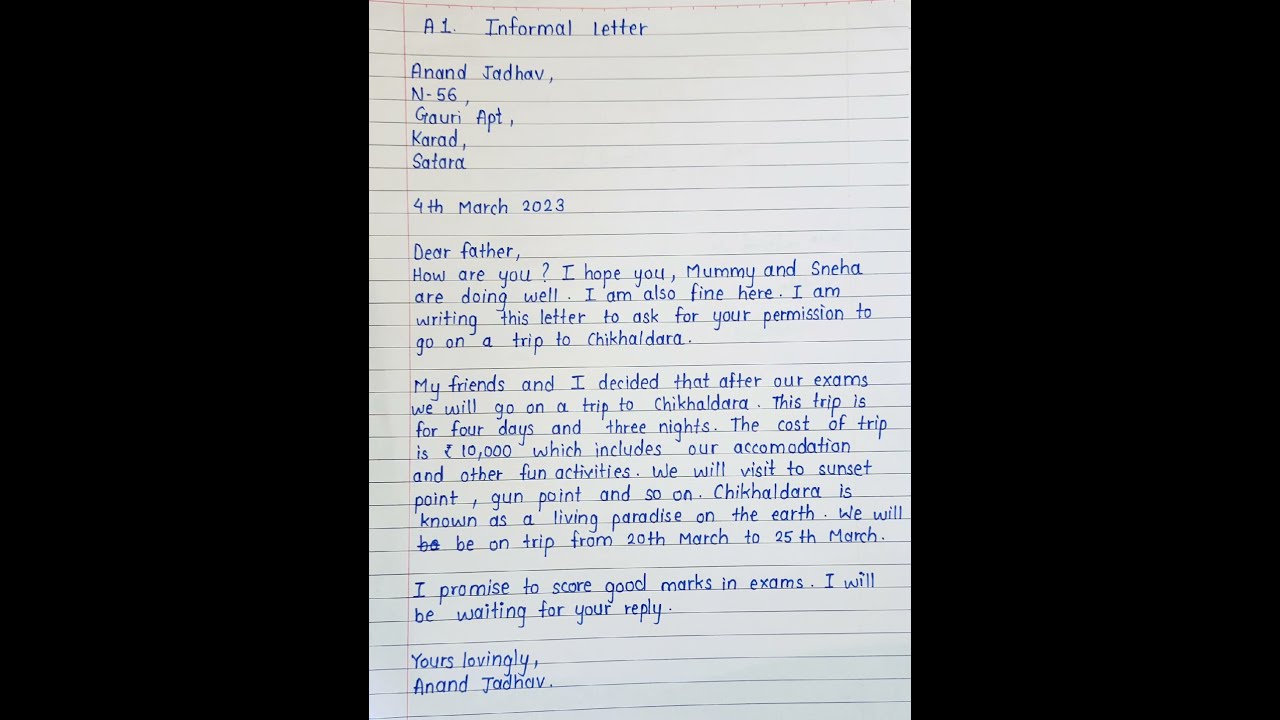 A1. Informal letter
Anand Jadhav,
N-56,
Gauri Apt,
Karad,
Satara
4th March 2023
Dear father,
How are you? I hope you, Mummy and Sneha
are doing well. I am also fine here. I am
writing this letter to ask for your permission to
go on a trip to Chikhaldara.
My friends and I decided that after our exams
we will go on a trip to Chikhaldara. This trip is
for four days and three nights. The cost of trip
is ₹ 10,000 which includes our accomodation
and other fun activities. We will visit to sunset
point, gun point and so on. Chikhaldara is
known as a living paradise on the earth. We will
be be on trip from 20th March to 25th March.
I promise to score good marks in exams. I will
be waiting for your reply.
Yours lovingly,
Anand Jadhav.